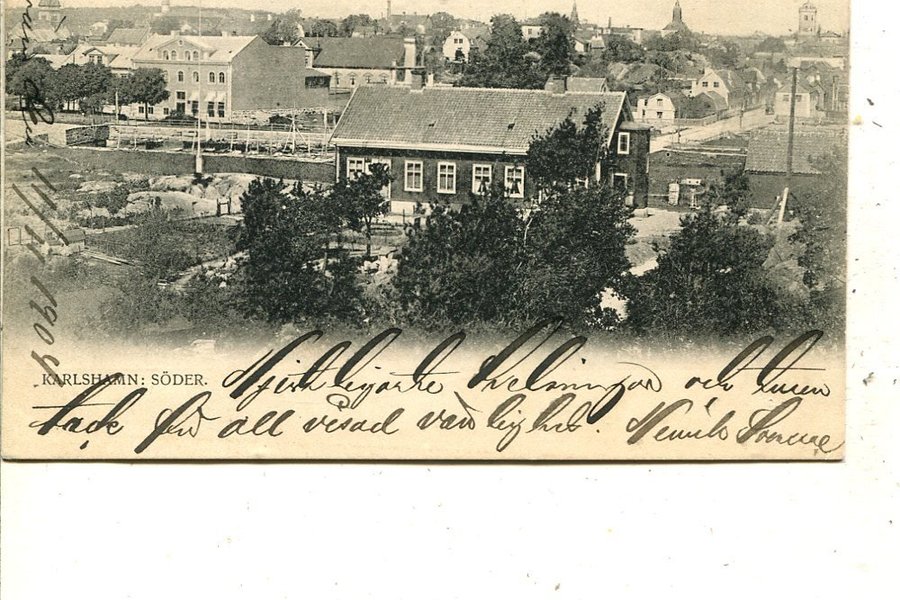 KARLSHAMN: SÖDER.
Hjertligaste helsningar och
tack för all visad vänlighet. Henrik
11/12 1902